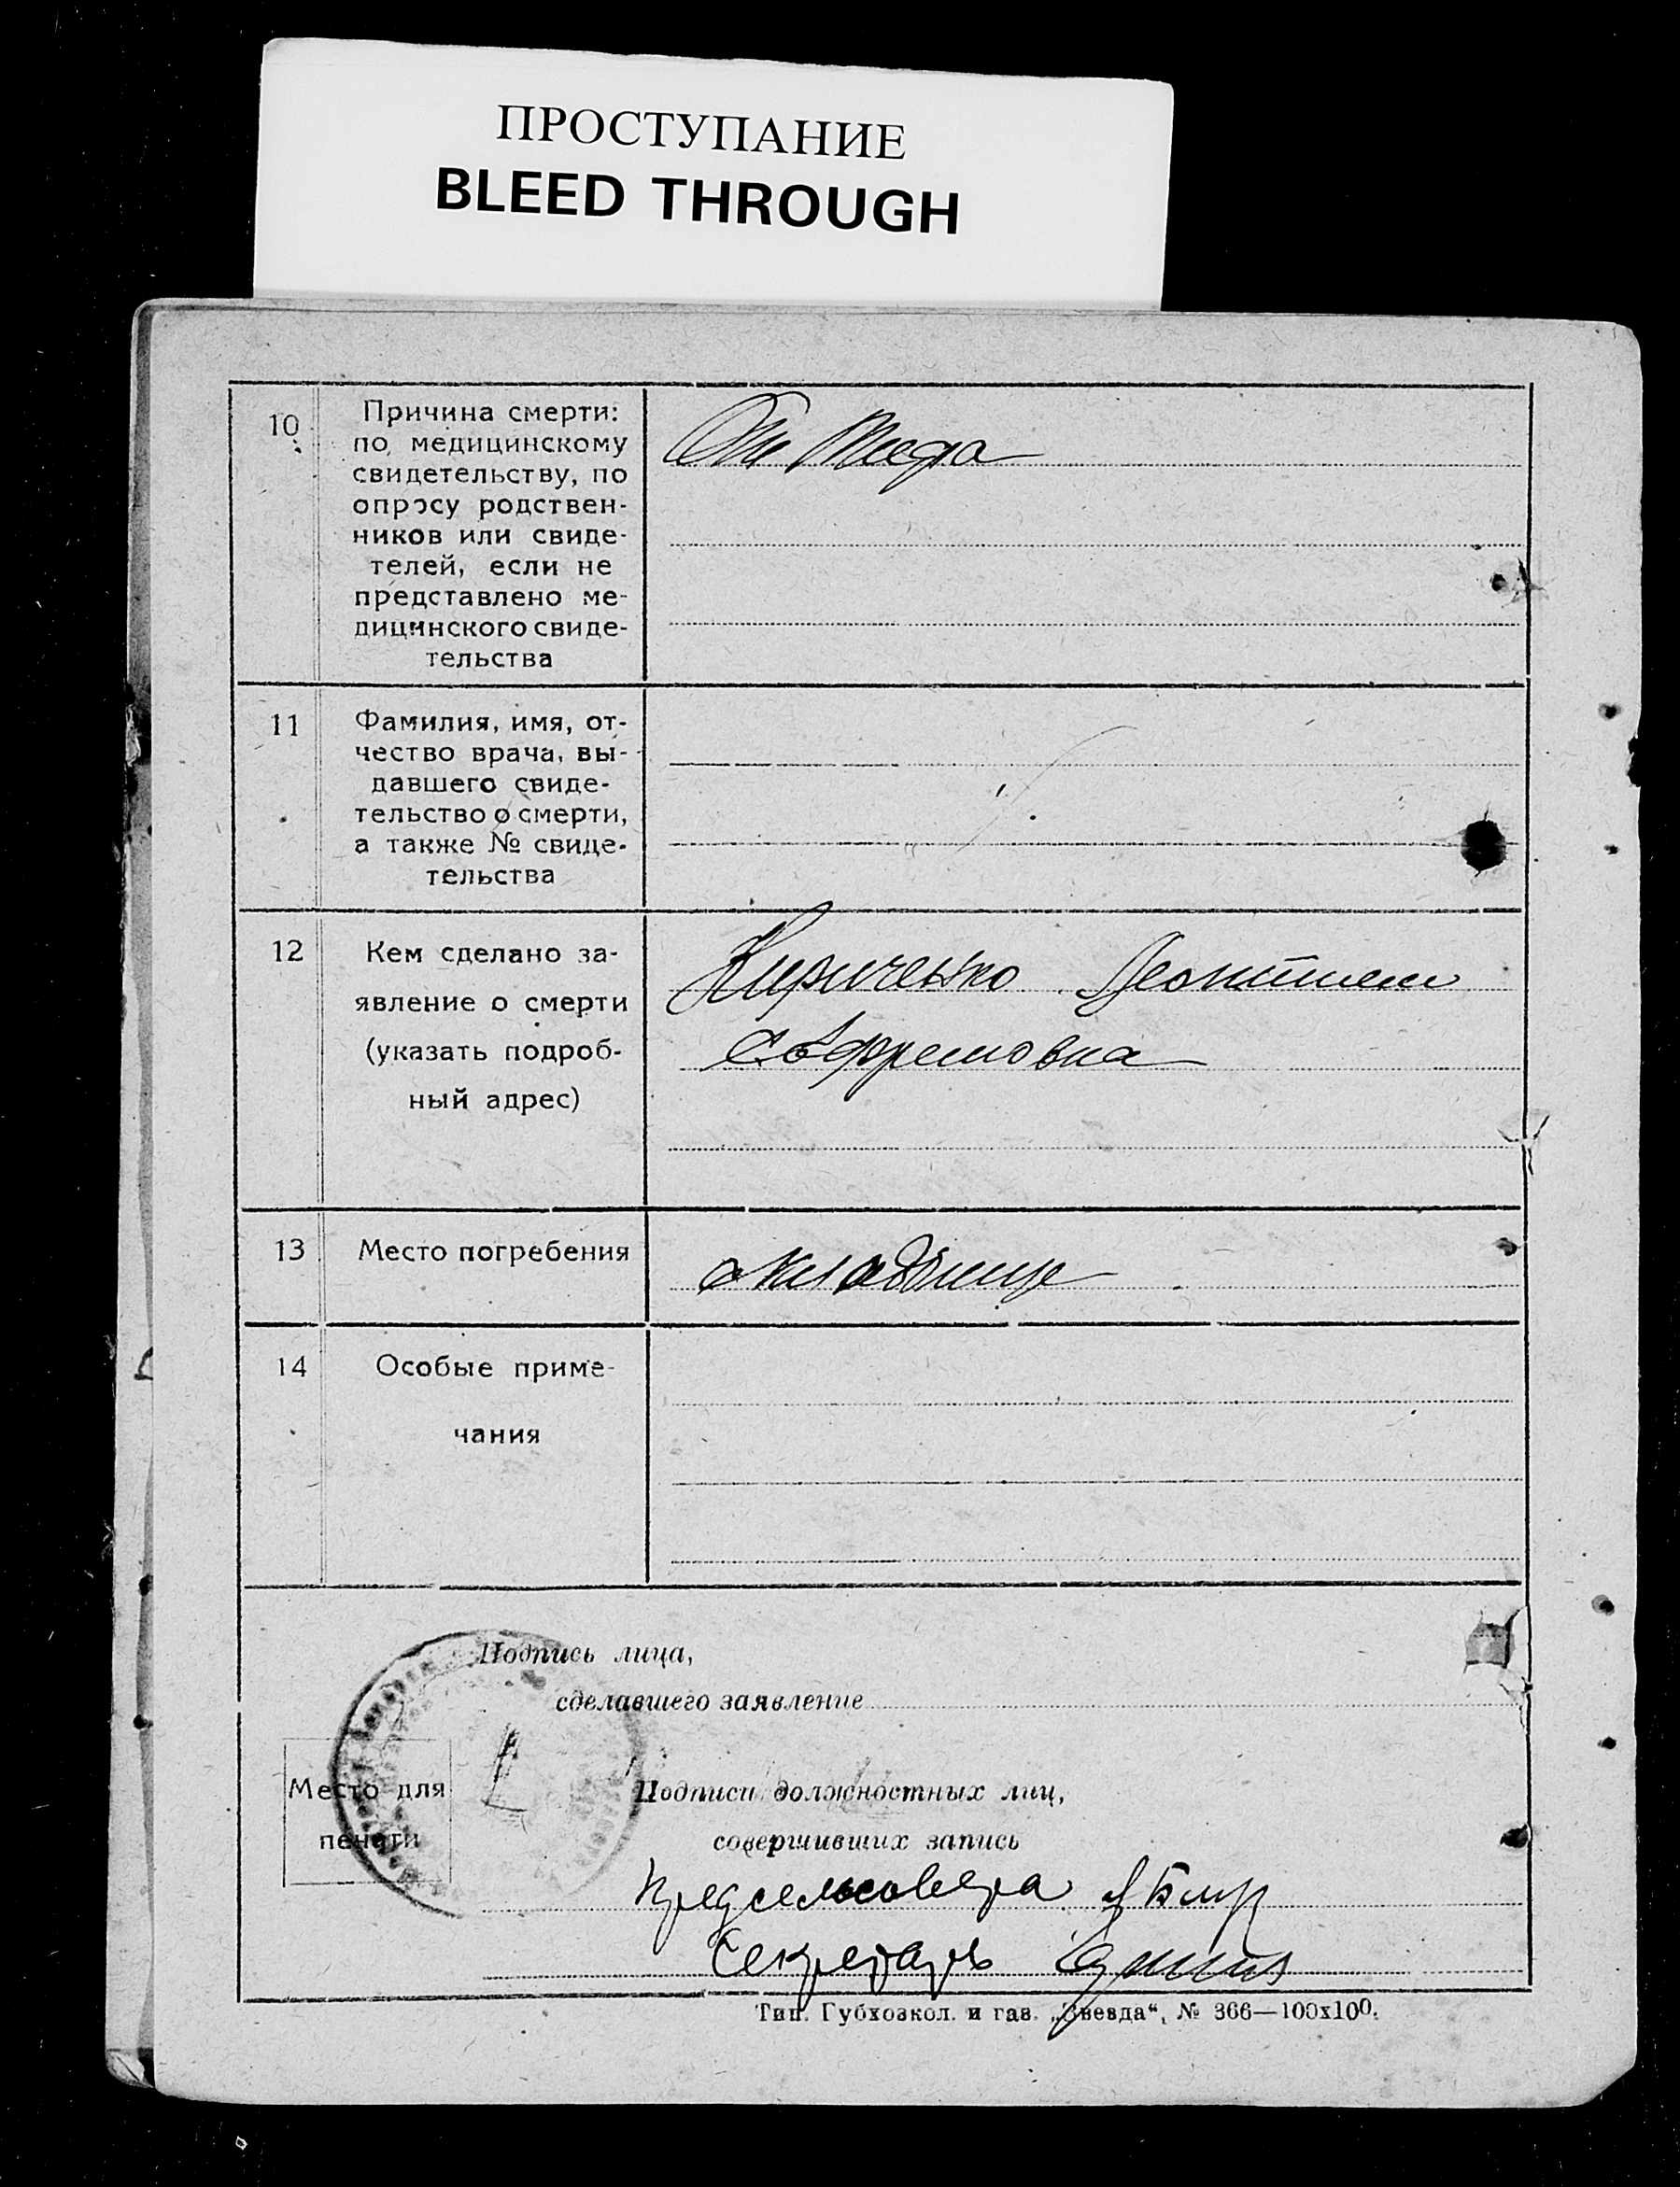 ПРОСТУПАНИЕ
BLEED THROUGH
10
Причина смерти:
по медицинскому
свидетельству, по
опросу родствен-
ников или свиде-
телей, если не
представлено ме-
дицинского свиде-
тельства
11
Фамилия, имя, от-
чество врача, вы-
давшего свиде-
тельство о смерти,
а также № свиде-
тельства
12
Кем сделано за-
явление о смерти
(указать подроб-
ный адрес)
Кириченко
13
Место погребения
14
Особые приме-
чания
Подпись лица,
сделавшего заявление
Место для
печати
Подписи должностных лиц,
совершивших запись
Предсельсовета
Секретарь
Тип. Губхозкол. и газ. „Звезда“, № 366—100х100.